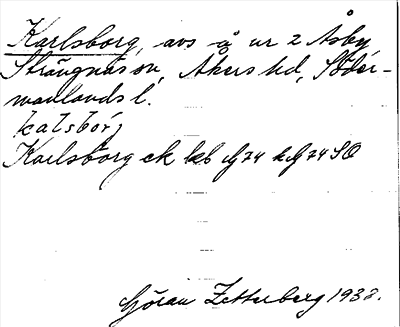 Karlsborg, avs å nr 2 Åsby,
Strängnäs sn, Åkers hd, Söder-
manlands l.
kalsbórj
Karlsborg ek kb dG74 hG74SO
Göran Zetterberg 1938.